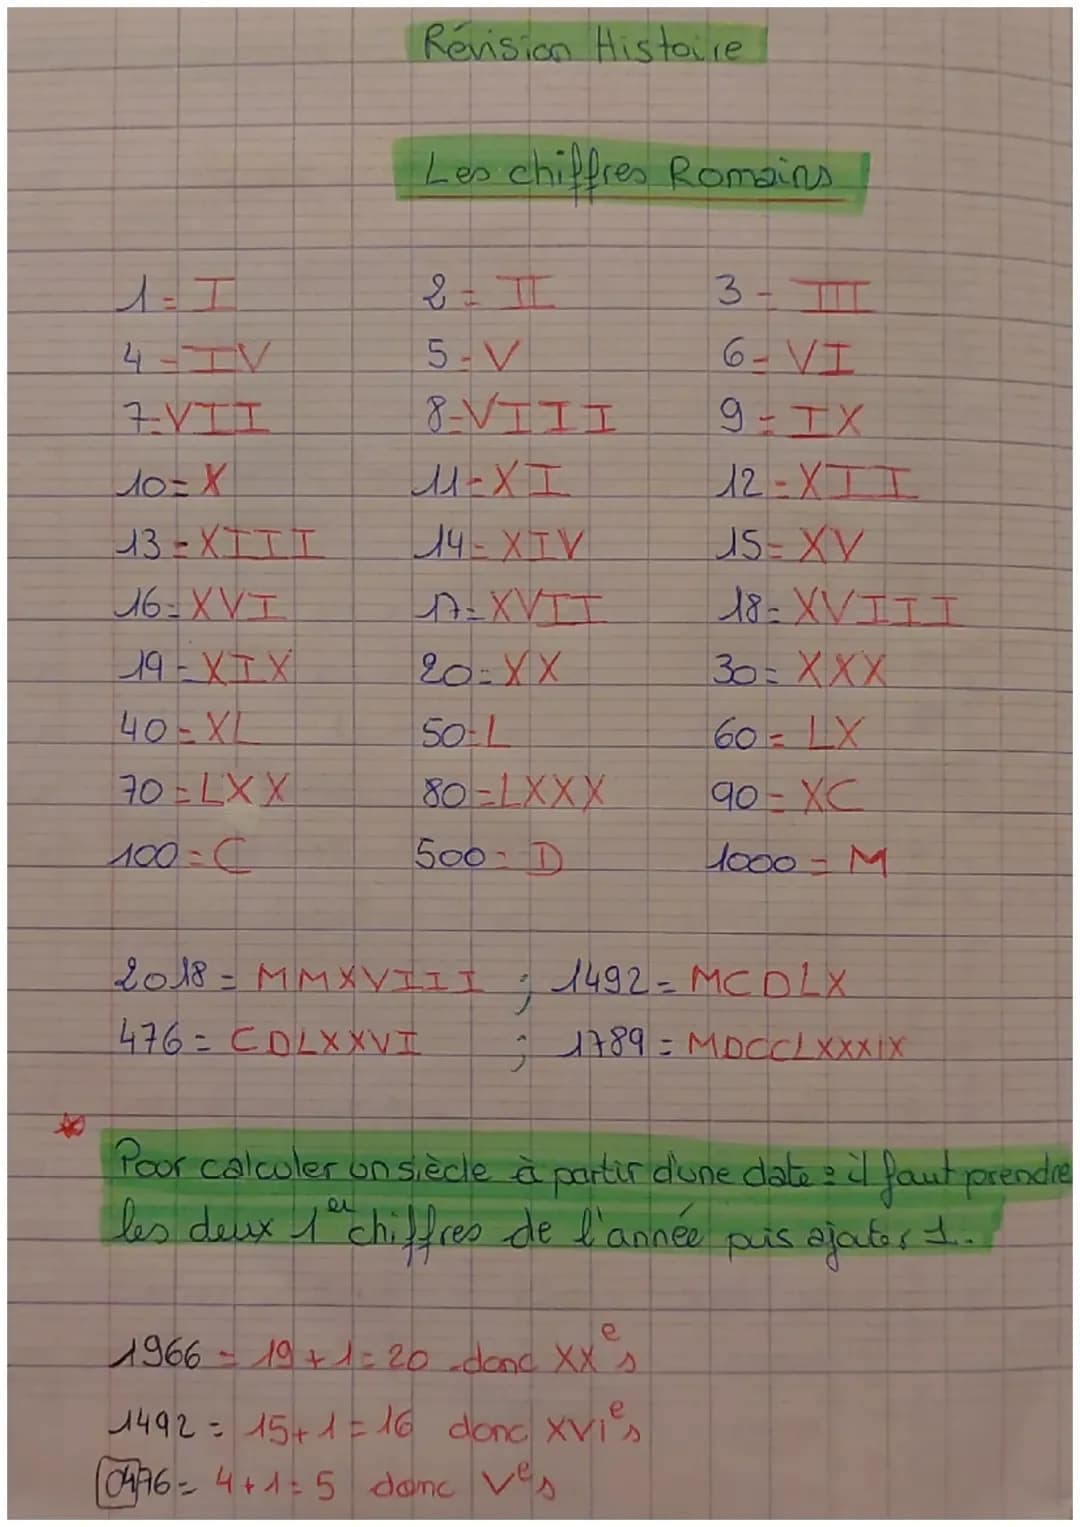 Révision Histoire
Les chiffres Romains
1 = I 2 = II 3 - III
4 = IV 5 - V 6 = VI
7 = VII 8 - VIII 9 = IX
10 = X 11 - XI 12 - XII
13 = XIII 14 - XIV 15 = XV
16 - XVI 17 = XVII 18 = XVIII
19 - XIX 20 = XX 30 = XXX
40 = XL 50 = L 60 = LX
70 = LXX 80 = LXXX 90 = XC
100 = C 500 = D 1000 = M
2018 = MMXVIII ; 1492 = MCDLX
476 = CDLXXVI ; 1789 = MDCCLXXXIX
Pour calculer un siècle à partir d'une date : il faut prendre
les deux 1er chiffres de l'année puis ajouter 1.
1966 = 19 + 1 = 20 donc XXe s
1492 = 15 + 1 = 16 donc XVIe s
0476 = 4 + 1 = 5 donc Ve s